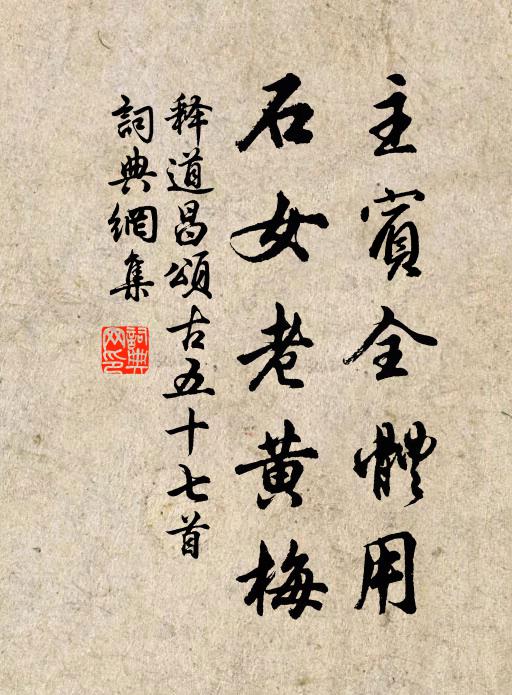 主賓全體用
石女老黃梅
释道昌頌古五十七首
詞典網集
詞典
网印